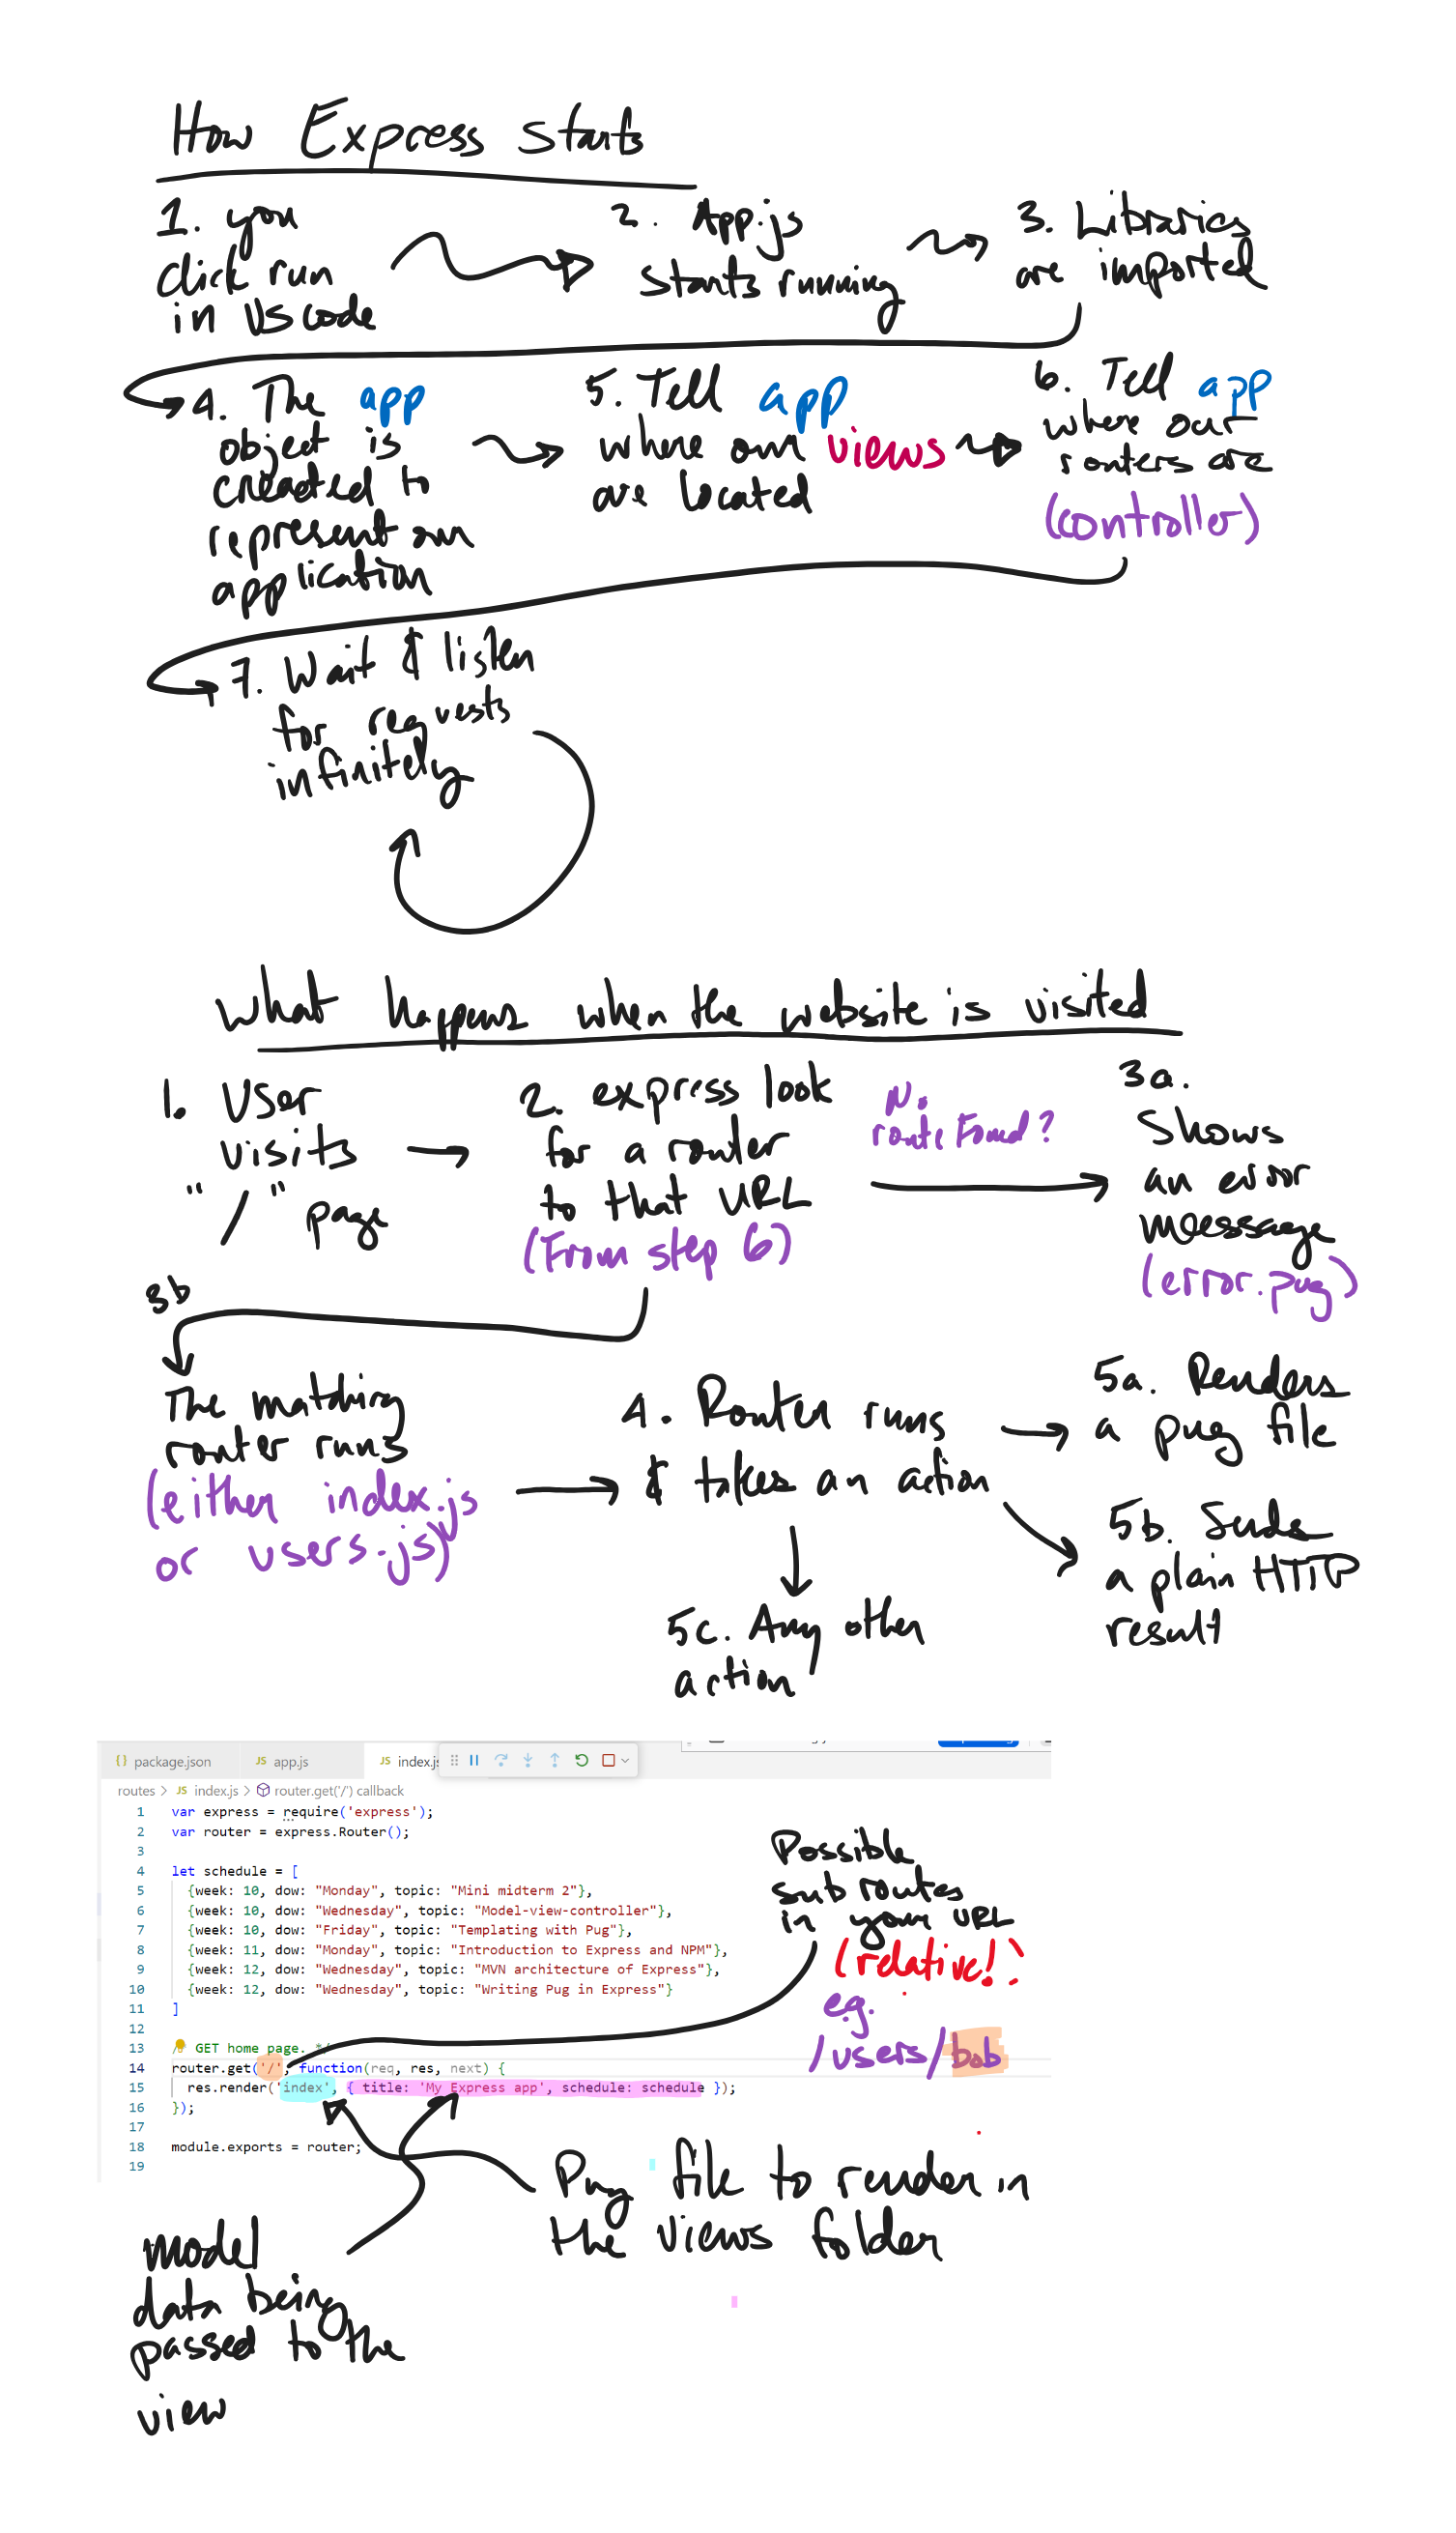 How Express starts
1. you
click run
in VS code
2. App.js
starts running
3. Libraries
are imported
4. The app
object is
created to
represent our
application
5. Tell app
where our views
are located
6. Tell app
where our
routers are
(controller)
7. Wait & listen
for requests
infinitely
What happens when the website is visited
1. User
visits
"/" page
2. express look
for a router
to that URL
(From step 6)
No
route found?
3a.
Shows
an error
message
(error.pug)
3b
The matching
router runs
(either index.js
or users.js)
4. Router runs
& takes an action
5a. Renders
a pug file
5b. Sends
a plain HTTP
result
5c. Any other
action
{} package.json JS app.js JS index.js
routes > JS index.js > router.get('/') callback
1 var express = require('express');
2 var router = express.Router();
3
4 let schedule = [
5 {week: 10, dow: "Monday", topic: "Mini midterm 2"},
6 {week: 10, dow: "Wednesday", topic: "Model-view-controller"},
7 {week: 10, dow: "Friday", topic: "Templating with Pug"},
8 {week: 11, dow: "Monday", topic: "Introduction to Express and NPM"},
9 {week: 12, dow: "Wednesday", topic: "MVN architecture of Express"},
10 {week: 12, dow: "Wednesday", topic: "Writing Pug in Express"}
11 ]
12
13 GET home page. */
14 router.get('/', function(req, res, next) {
15 res.render('index', { title: 'My Express app', schedule: schedule });
16 });
17
18 module.exports = router;
19
Possible
sub routes
in your URL
(relative!)
eg.
/users/bob
Pug file to render in
the views folder
model
data being
passed to the
view